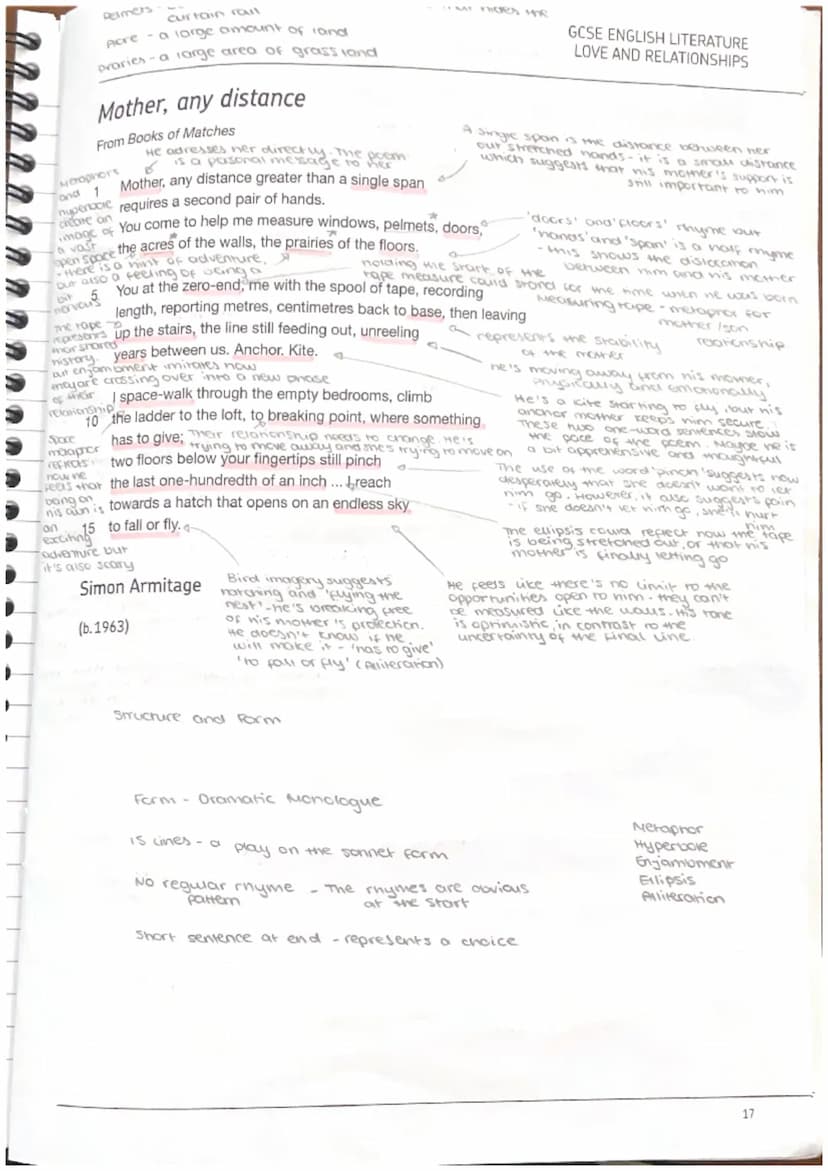 Pelmets -
curtain rail
Acre - a large amount of land
Praries - a large area of grassland
that hides the
GCSE ENGLISH LITERATURE
LOVE AND RELATIONSHIPS
Mother, any distance
From Books of Matches
He adresses her directly. The poem
is a pasonal message to her
A single span is the distance between her
out stretched hands - it is a small distance
which suggests that his mother's support is
still important to him
Metaphors
and
hyperbole
create an
image of
a vast
open space
- there is a hint of adventure,
but also a feeling of being a
bit
nervous
1 Mother, any distance greater than a single span
requires a second pair of hands.
You come to help me measure windows, pelmets, doors,
the acres of the walls, the prairies of the floors.
'doors' and 'floors' rhyme but
'hands' and 'span' is a half rhyme
- this shows the
between him and his mother
holding the start of the
tape measure could stand for the time when he was born
5 You at the zero-end, me with the spool of tape, recording
length, reporting metres, centimetres back to base, then leaving
up the stairs, the line still feeding out, unreeling
years between us. Anchor. Kite.
Measuring tape - metaphor for
mother/son
The tape
represents
their shared
history.
but enjambment imitates how
they are crossing over into a new phase
of their
relationship
represents the stability
of the mother
he's moving away from his mother,
physically and emotionally
He's a kite starting to fly, but his
anchor mother keeps him secure.
These two one-word sentences slow
the pace of the poem. Maybe he is
a bit apprehensive and thoughtful
I space-walk through the empty bedrooms, climb
10 the ladder to the loft, to breaking point, where something
has to give;
Their relationship needs to change. He's
trying to move away and she's trying to move on
two floors below your fingertips still pinch
the last one-hundredth of an inch ... I reach
towards a hatch that opens on an endless sky
15 to fall or fly.
Space
metaphor
reflects
how he
feels that
being on
his own is
an
exciting
adventure but
it's also scary
The use of the word 'pinch' suggests how
desperately that she doesn't want to let
him go. However, it also suggests pain
- if she doesn't let him go, she'll hurt
him
The ellipsis could reflect how the tape
is being stretched out, or that his
mother is finally letting go
Simon Armitage
(b.1963)
Bird imagery suggests
hatching and 'flying the
nest' - he's breaking free
of his mother's protection.
He doesn't know if he
will make it - 'has to give'
'to fall or fly' (Alliteration)
He feels like there's no limit to the
opportunities open to him - they can't
be measured like the walls. His tone
is optimistic, in contrast to the
uncertainty of the final line.
Structure and Form
Form - Dramatic Monologue
15 lines - a play on the sonnet form
No regular rhyme - The rhymes are obvious
pattern at the start
Short sentence at end - represents a choice
Metaphor
Hyperbole
Enjambment
Ellipsis
Alliteration
17